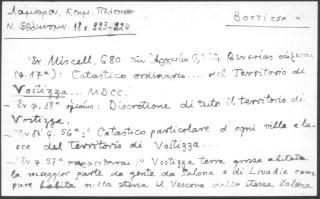 Λάμπρου, Κτημ. Πελοπον
Ν. Ἑλληνομν. 18, 223-224
Βοστίτσα
Ἐν Miscell. 680 τῶν Ἀρχείων Βενετίας
(φ. 17ᵃ): Catastico ordinario... del Territorio di
Vostizza... MDCC.
Ἐν φ. 18ᵃ ὁμοίως: Discretione di tuto il territorio di
Vostizza.
Ἐν φ. 56ᵃ: Catastico particolare di ogni villa e lu-
oco del Territorio di Vostizza...
Ἐν φ. 57ᵃ: Vostizza terra grossa abitata
la maggior parte da gente da Salona e di Livadia come
pure habita nella stessa il Vescovo della stessa Salona